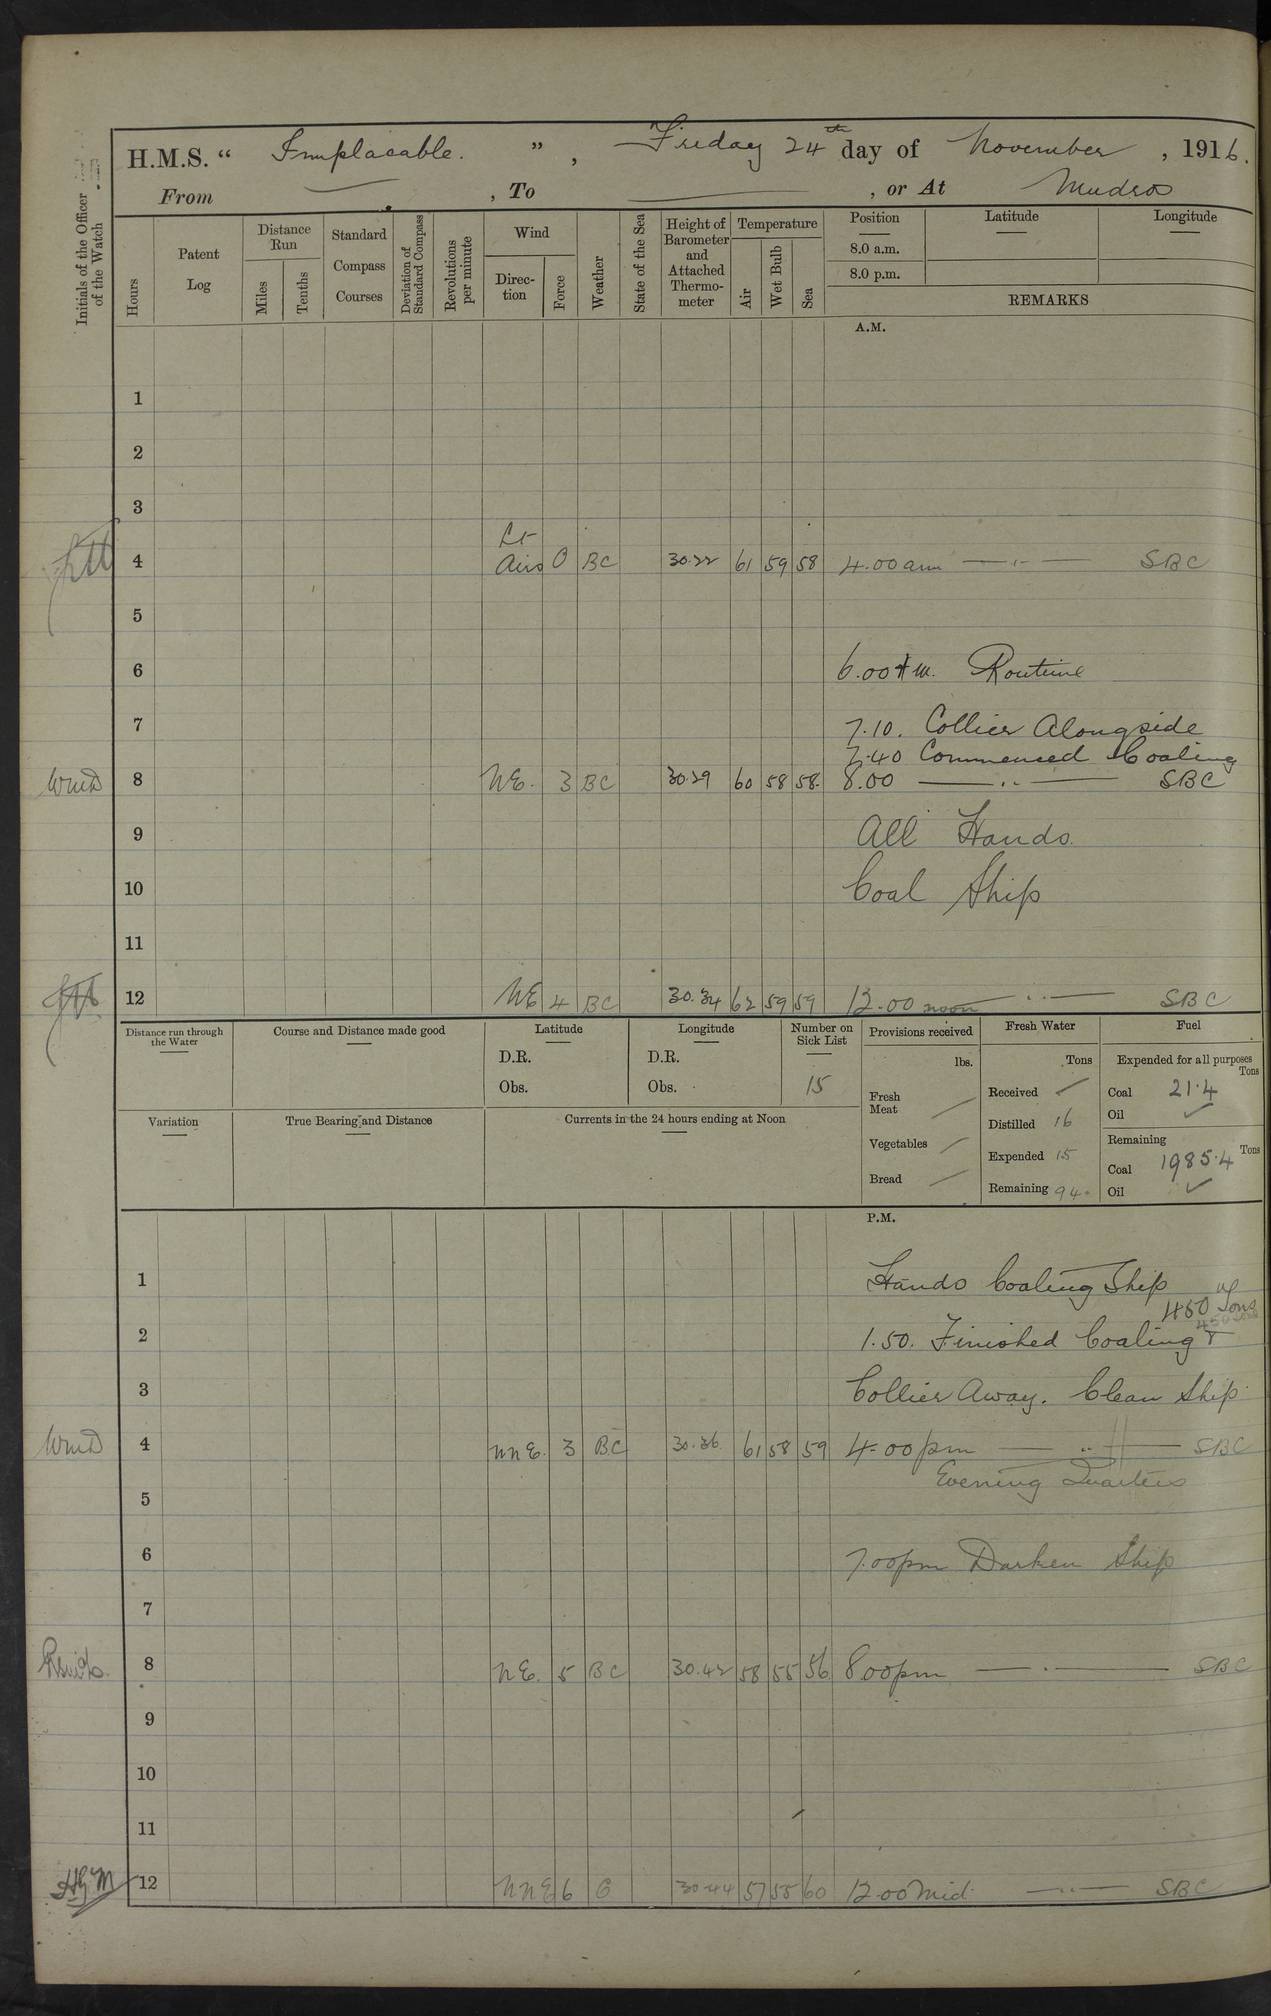 H.M.S. “ Implacable. ”, Friday 24th day of November, 1916.
From , To , or At Mudros
Initials of the Officer of the Watch
Hours
Patent Log
Distance Run
Miles
Tenths
Standard Compass Courses
Deviation of Standard Compass
Revolutions per minute
Wind
Direction
Force
Weather
State of the Sea
Height of Barometer and Attached Thermometer
Temperature
Air
Wet Bulb
Sea
Position
8.0 a.m.
8.0 p.m.
Latitude
Longitude
REMARKS
A.M.
1
2
3
Lt
4 Airs 0 BC 30.22 61 59 58 4.00 am — SBC
5
6 6.00 AM. Routine
7 7.10. Collier Alongside
7.40 Commenced Coaling
WMD 8 NE. 3 BC 30.29 60 58 58. 8.00 — SBC
9 All Hands
10 Coal Ship
11
12 NE 4 BC 30.34 62 59 59 12.00 noon — SBC
Distance run through the Water
Course and Distance made good
Latitude
D.R.
Obs.
Longitude
D.R.
Obs.
Number on Sick List
15
Provisions received
lbs.
Fresh Meat
Vegetables
Bread
Fresh Water
Tons
Received
Distilled 16
Expended 15
Remaining 94.
Fuel
Expended for all purposes
Tons
Coal 21.4
Oil
Remaining
Tons
Coal 1985.4
Oil
Variation
True Bearing and Distance
Currents in the 24 hours ending at Noon
P.M.
1 Hands Coaling Ship
450 Tons
450 Tons
2 1.50. Finished Coaling &
3 Collier Away. Clean Ship.
WMD 4 NNE. 3 BC 30.36 61 58 59 4.00 pm — SBC
Evening Quarters
5
6 7.00pm Darken Ship
7
8 NE. 5 BC 30.42 58 55 56 8.00pm — SBC
9
10
11
HGM 12 NNE 6 C 30.44 57 55 60 12.00 Mid. — SBC